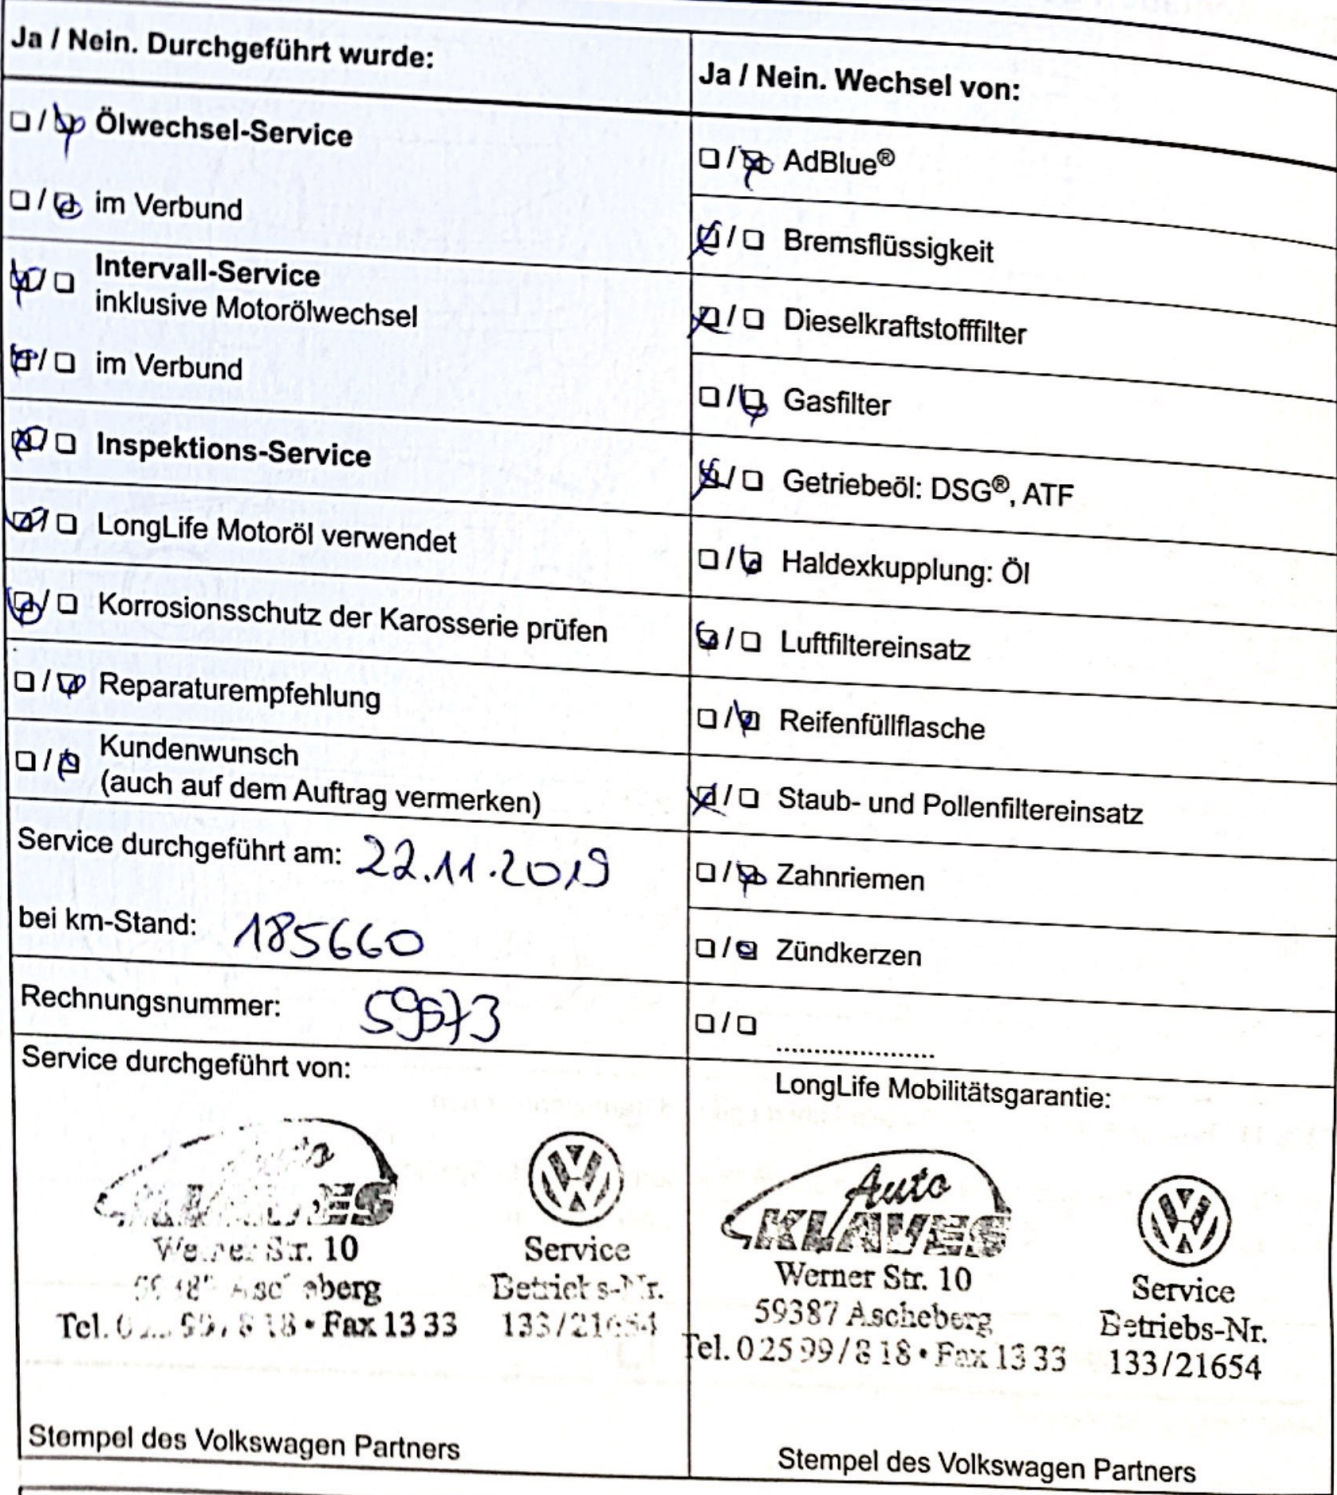 Ja / Nein. Durchgeführt wurde:
☐ / ☒ Ölwechsel-Service
☐ / ☒ im Verbund
☒ / ☐ Intervall-Service
inklusive Motorölwechsel
☒ / ☐ im Verbund
☒ / ☐ Inspektions-Service
☒ / ☐ LongLife Motoröl verwendet
☒ / ☐ Korrosionsschutz der Karosserie prüfen
☐ / ☒ Reparaturempfehlung
☐ / ☒ Kundenwunsch
(auch auf dem Auftrag vermerken)
Service durchgeführt am: 22.11.2019
bei km-Stand: 185660
Rechnungsnummer:
Service durchgeführt von:
KLAVES
Werner Str. 10
Ascheberg
Tel. 18 • Fax 13 33
Service
Betriebs-Nr.
133/21654
Stempel des Volkswagen Partners
Ja / Nein. Wechsel von:
☐ / ☒ AdBlue®
☒ / ☐ Bremsflüssigkeit
☒ / ☐ Dieselkraftstofffilter
☐ / ☒ Gasfilter
☒ / ☐ Getriebeöl: DSG®, ATF
☐ / ☒ Haldexkupplung: Öl
☒ / ☐ Luftfiltereinsatz
☐ / ☒ Reifenfüllflasche
☒ / ☐ Staub- und Pollenfiltereinsatz
☐ / ☒ Zahnriemen
☐ / ☒ Zündkerzen
☐ / ☐ ......................
LongLife Mobilitätsgarantie:
Auto
KLAVES
Werner Str. 10
59387 Ascheberg
Tel. 0 25 99 / 8 18 • Fax 13 33
VW
Service
Betriebs-Nr.
133/21654
Stempel des Volkswagen Partners